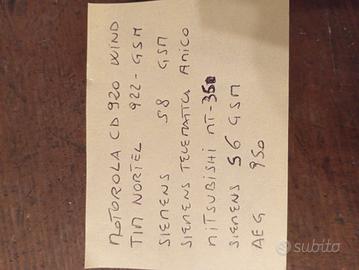 MOTOROLA CD920 WIND
TIM NORTEL 922-GSM
SIEMENS S8 GSM
SIEMENS TELEMATICA AMICO
MITSUBISHI MT-35
SIEMENS S6 GSM
AEG 950
subito